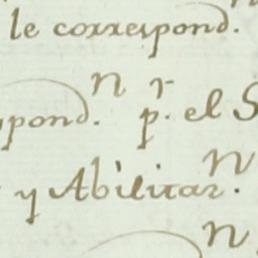 le correspond.n
spond.n p.r el S
y Abilitar.n
n